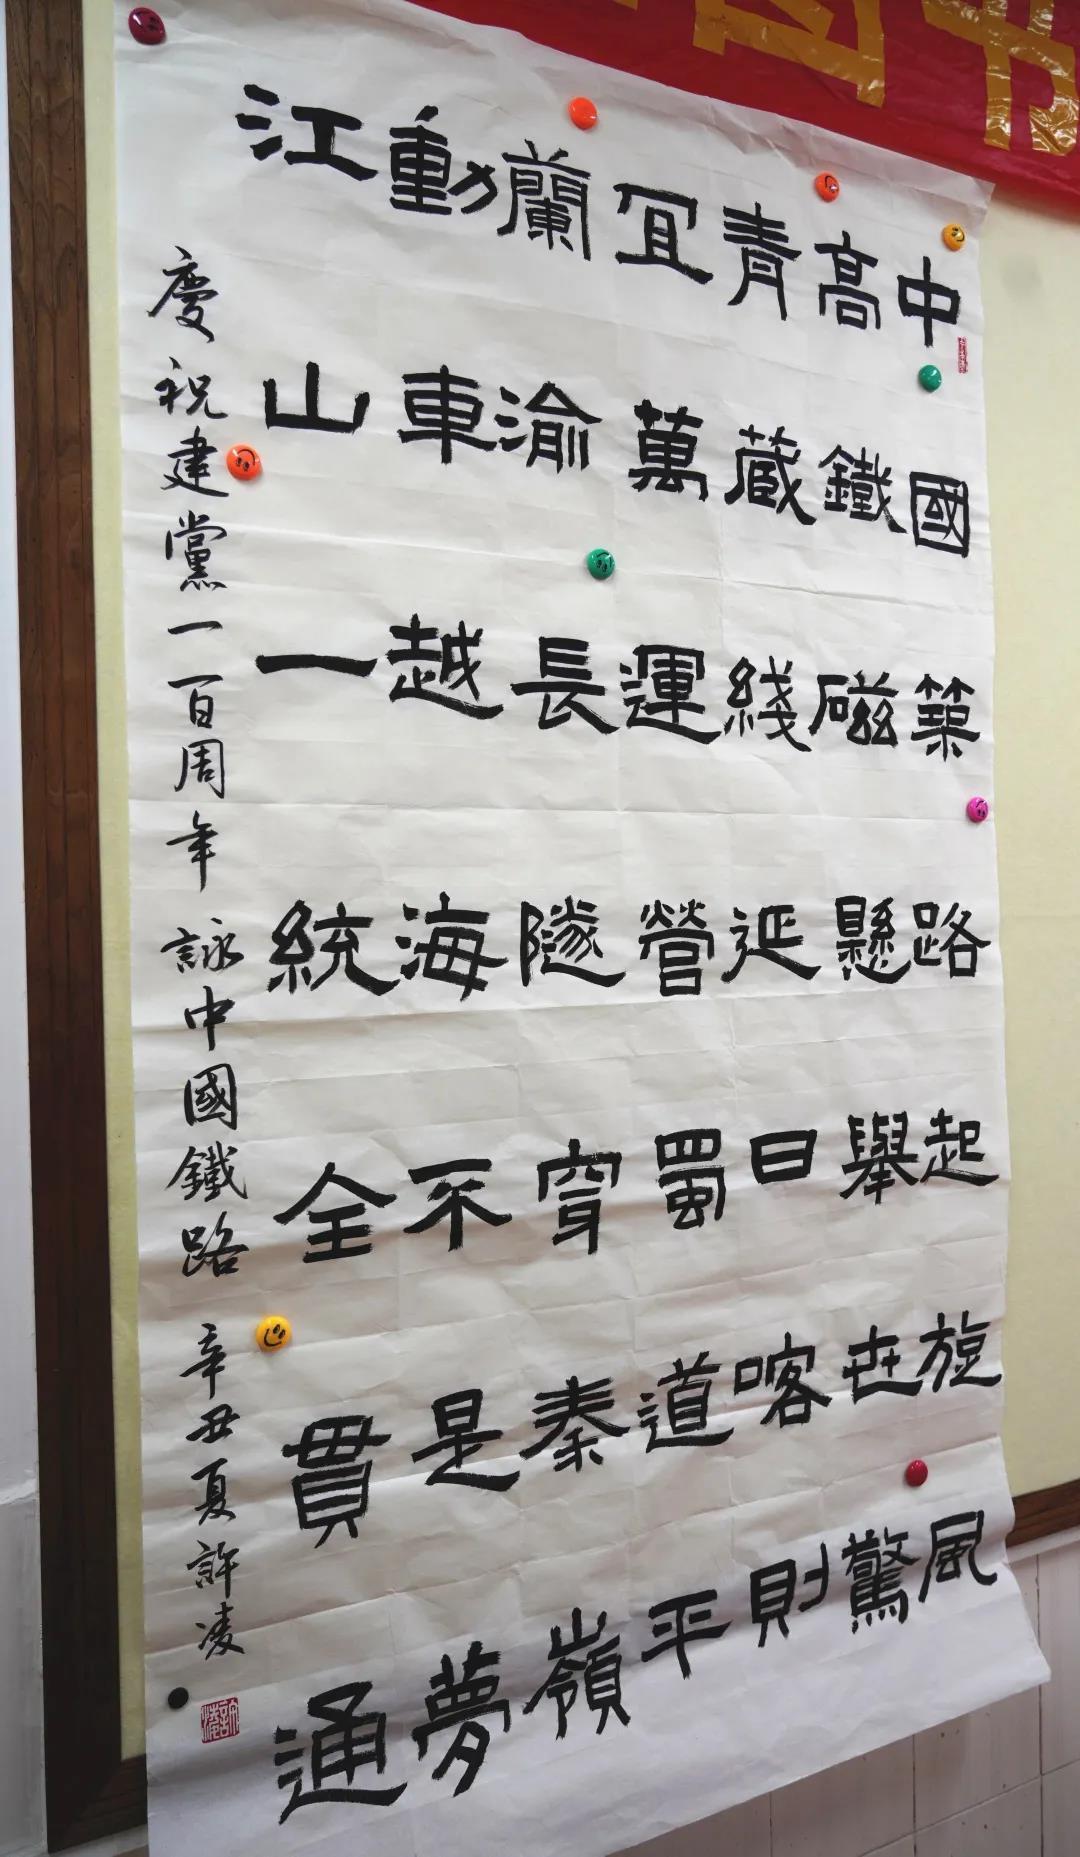 中國築路起旋風
高鐵磁懸舉世驚
青藏綫延日喀則
宜萬運營蜀道平
蘭渝長隧穿秦嶺
動車越海不是夢
江山一統全貫通
慶祝建黨一百周年 詠中國鐵路 辛丑夏 許凌